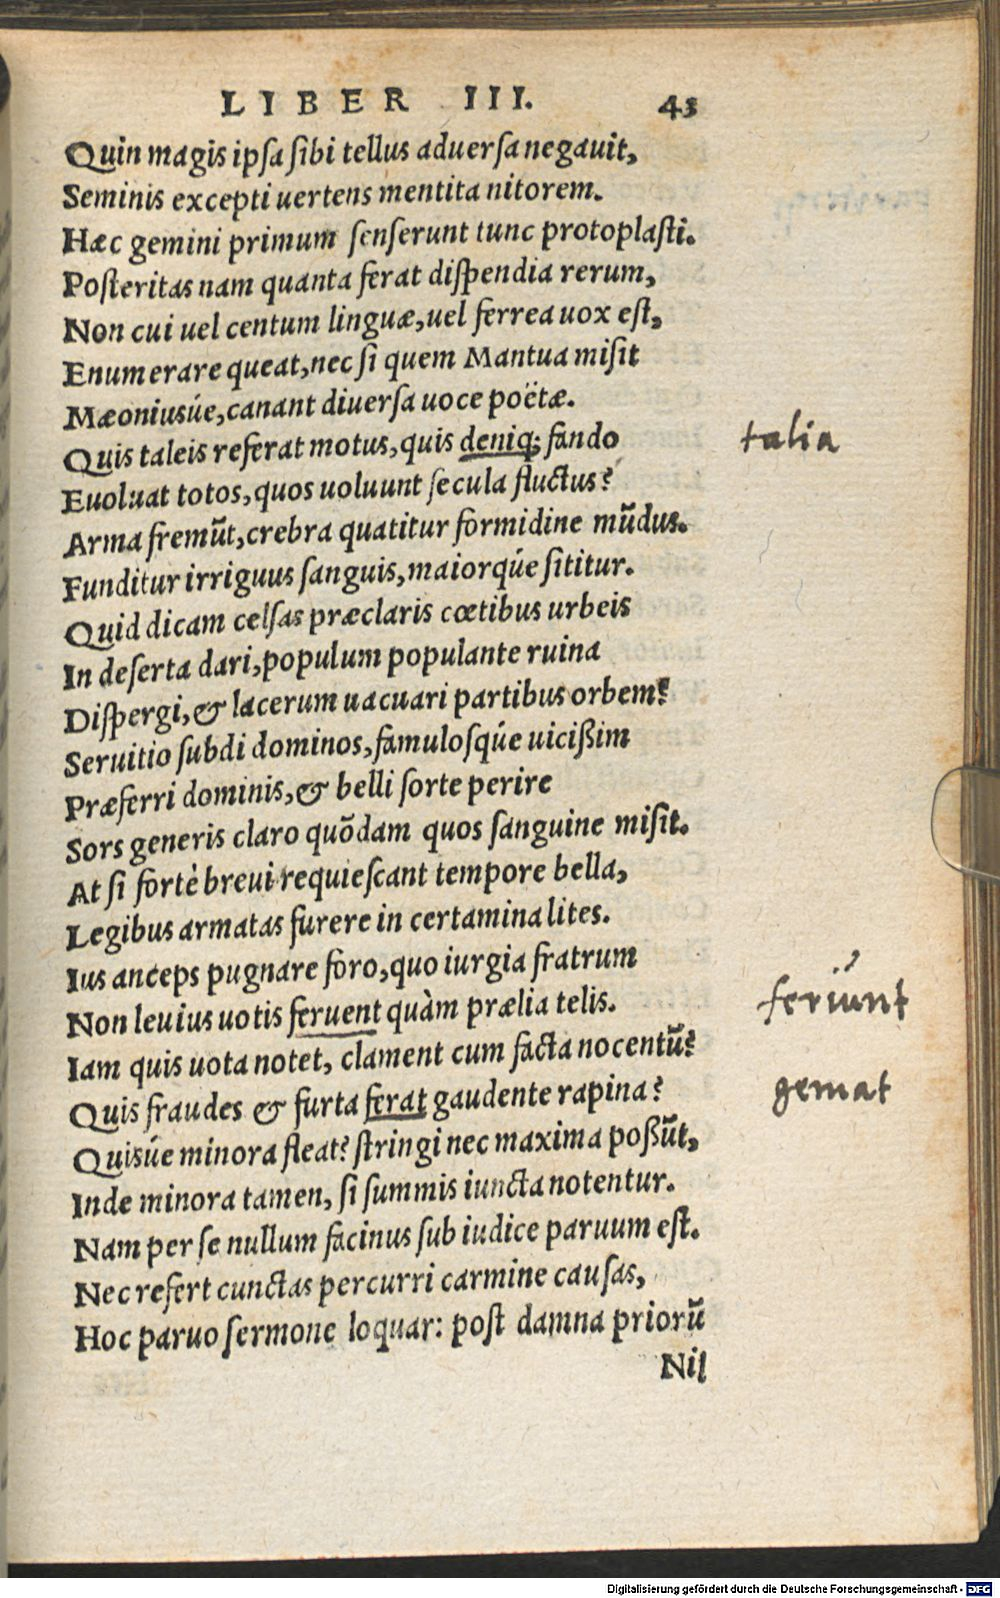 LIBER III. 43
Quin magis ipsa sibi tellus aduersa negauit,
Seminis excepti uertens mentita nitorem.
Hæc gemini primum senserunt tunc protoplasti.
Posteritas nam quanta ferat dispendia rerum,
Non cui uel centum linguæ, uel ferrea uox est,
Enumerare queat, nec si quem Mantua misit
Mæoniusúe, canant diuersa uoce poëtæ.
Quis taleis referat motus, quis deniq; fando talia
Euoluat totos, quos uoluunt secula fluctus?
Arma fremūt, crebra quatitur formidine mūdus.
Funditur irriguus sanguis, maiorq́ue sititur.
Quid dicam celsas præclaris cœtibus urbeis
In deserta dari, populum populante ruina
Dispergi, & lacerum uacuari partibus orbem?
Seruitio subdi dominos, famulosq́ue uicißim
Præferri dominis, & belli sorte perire
Sors generis claro quōdam quos sanguine misit.
At si fortè breui requiescant tempore bella,
Legibus armatas furere in certamina lites.
Ius anceps pugnare foro, quo iurgia fratrum
Non leuius uotis feruent quàm prælia telis. feriunt
Iam quis uota notet, clament cum facta nocentū?
Quis fraudes & furta ferat gaudente rapina? gemat
Quisúe minora fleat? stringi nec maxima poßūt,
Inde minora tamen, si summis iuncta notentur.
Nam per se nullum facinus sub iudice paruum est.
Nec refert cunctas percurri carmine causas,
Hoc paruo sermone loquar: post damna priorū
Nil
Digitalisierung gefördert durch die Deutsche Forschungsgemeinschaft - DFG